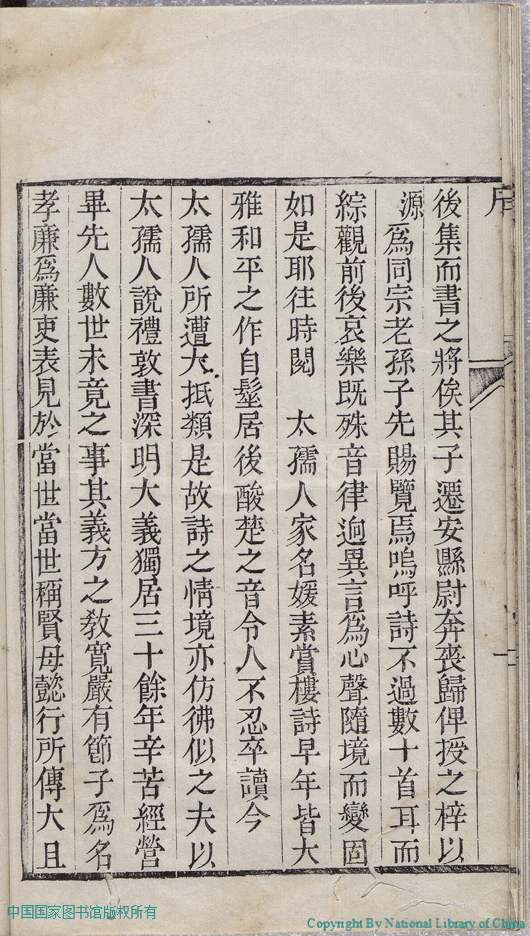 後集而書之將俟其子遷安縣尉奔喪歸俾授之梓以
源爲同宗老孫子先賜覽焉嗚呼詩不過數十首耳而
綜觀前後哀樂既殊音律迥異言爲心聲隨境而變固
如是耶往時閱 太孺人家名媛素賞樓詩早年皆大
雅和平之作自髽居後酸楚之音令人不忍卒讀今
太孺人所遭大抵類是故詩之情境亦仿彿似之夫以
太孺人說禮敦書深明大義獨居三十餘年辛苦經營
畢先人數世未竟之事其義方之教寬嚴有節子爲名
孝廉爲廉吏表見於當世當世稱賢母懿行所傳大且
中国国家图书馆版权所有
Copyright By National Library of China